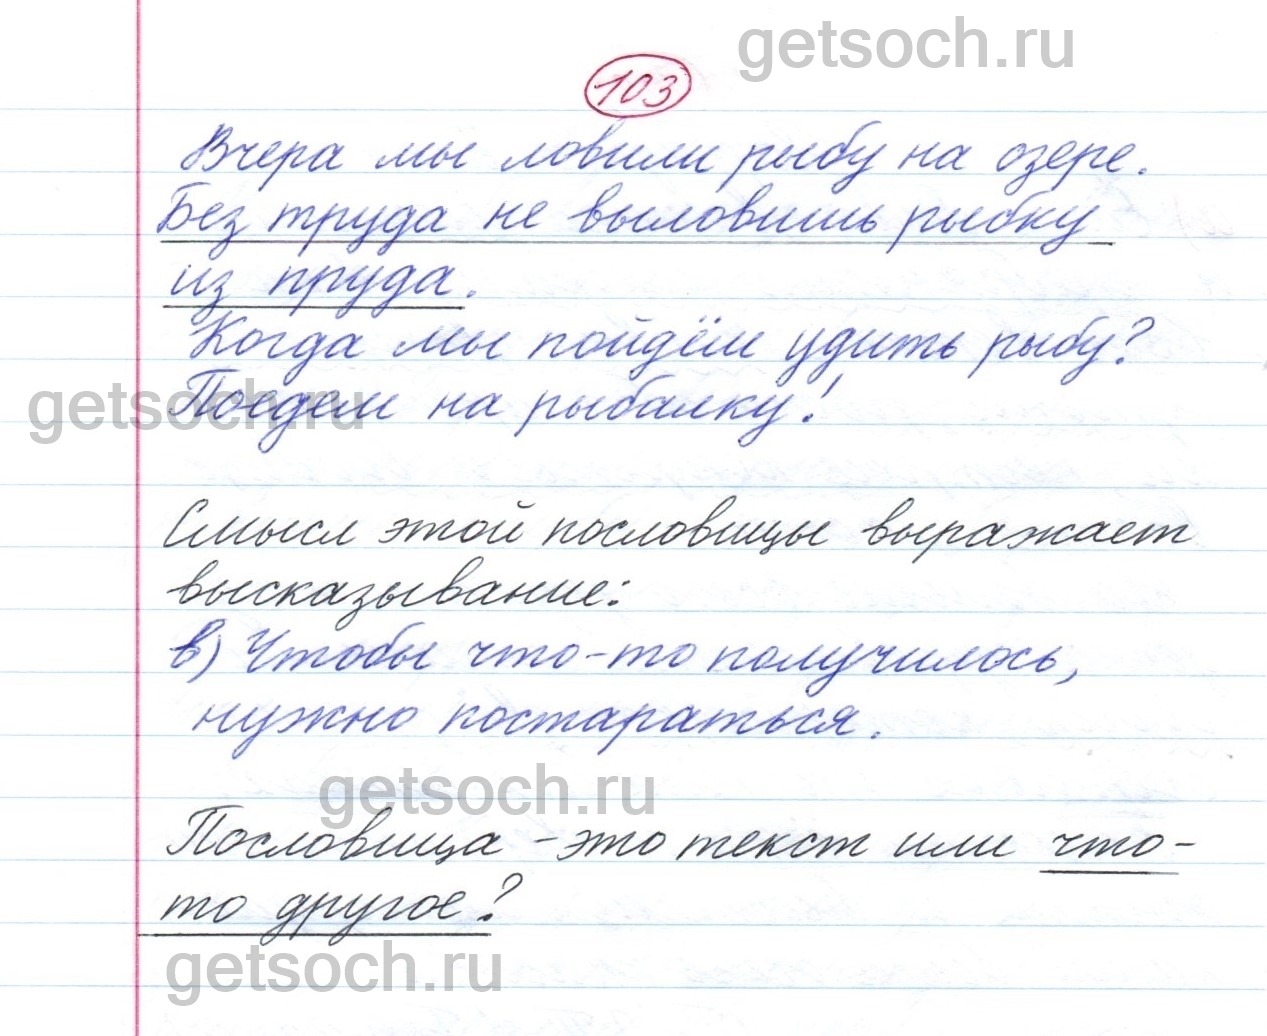 getsoch.ru
103
Вчера мы ловили рыбу на озере.
Без труда не выловишь рыбку
из пруда.
Когда мы пойдём удить рыбу?
getsoch.ru
Поедем на рыбалку!
Смысл этой пословицы выражает
высказывание:
в) Чтобы что-то получилось,
нужно постараться.
getsoch.ru
Пословица - это текст или что-
то другое?
getsoch.ru